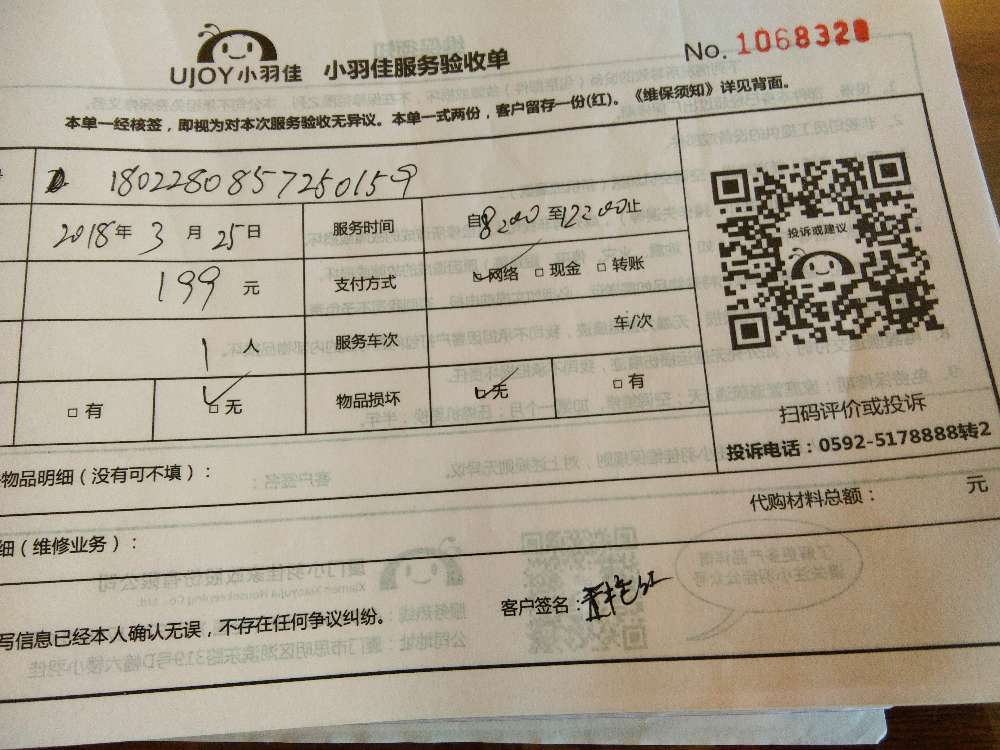 UJOY小羽佳 小羽佳服务验收单 No. 1068328
本单一经核签，即视为对本次服务验收无异议。本单一式两份，客户留存一份(红)。《维保须知》详见背面。
1802280857250159
2018年 3 月 25日 服务时间 自8:00至12:00止
199 元 支付方式 网络 现金 转账
1 人 服务车次 车/次
有 无 物品损坏 无 有
投诉或建议
扫码评价或投诉
投诉电话：0592-5178888转2
物品明细（没有可不填）：
代购材料总额： 元
细（维修业务）：
写信息已经本人确认无误，不存在任何争议纠纷。 客户签名：